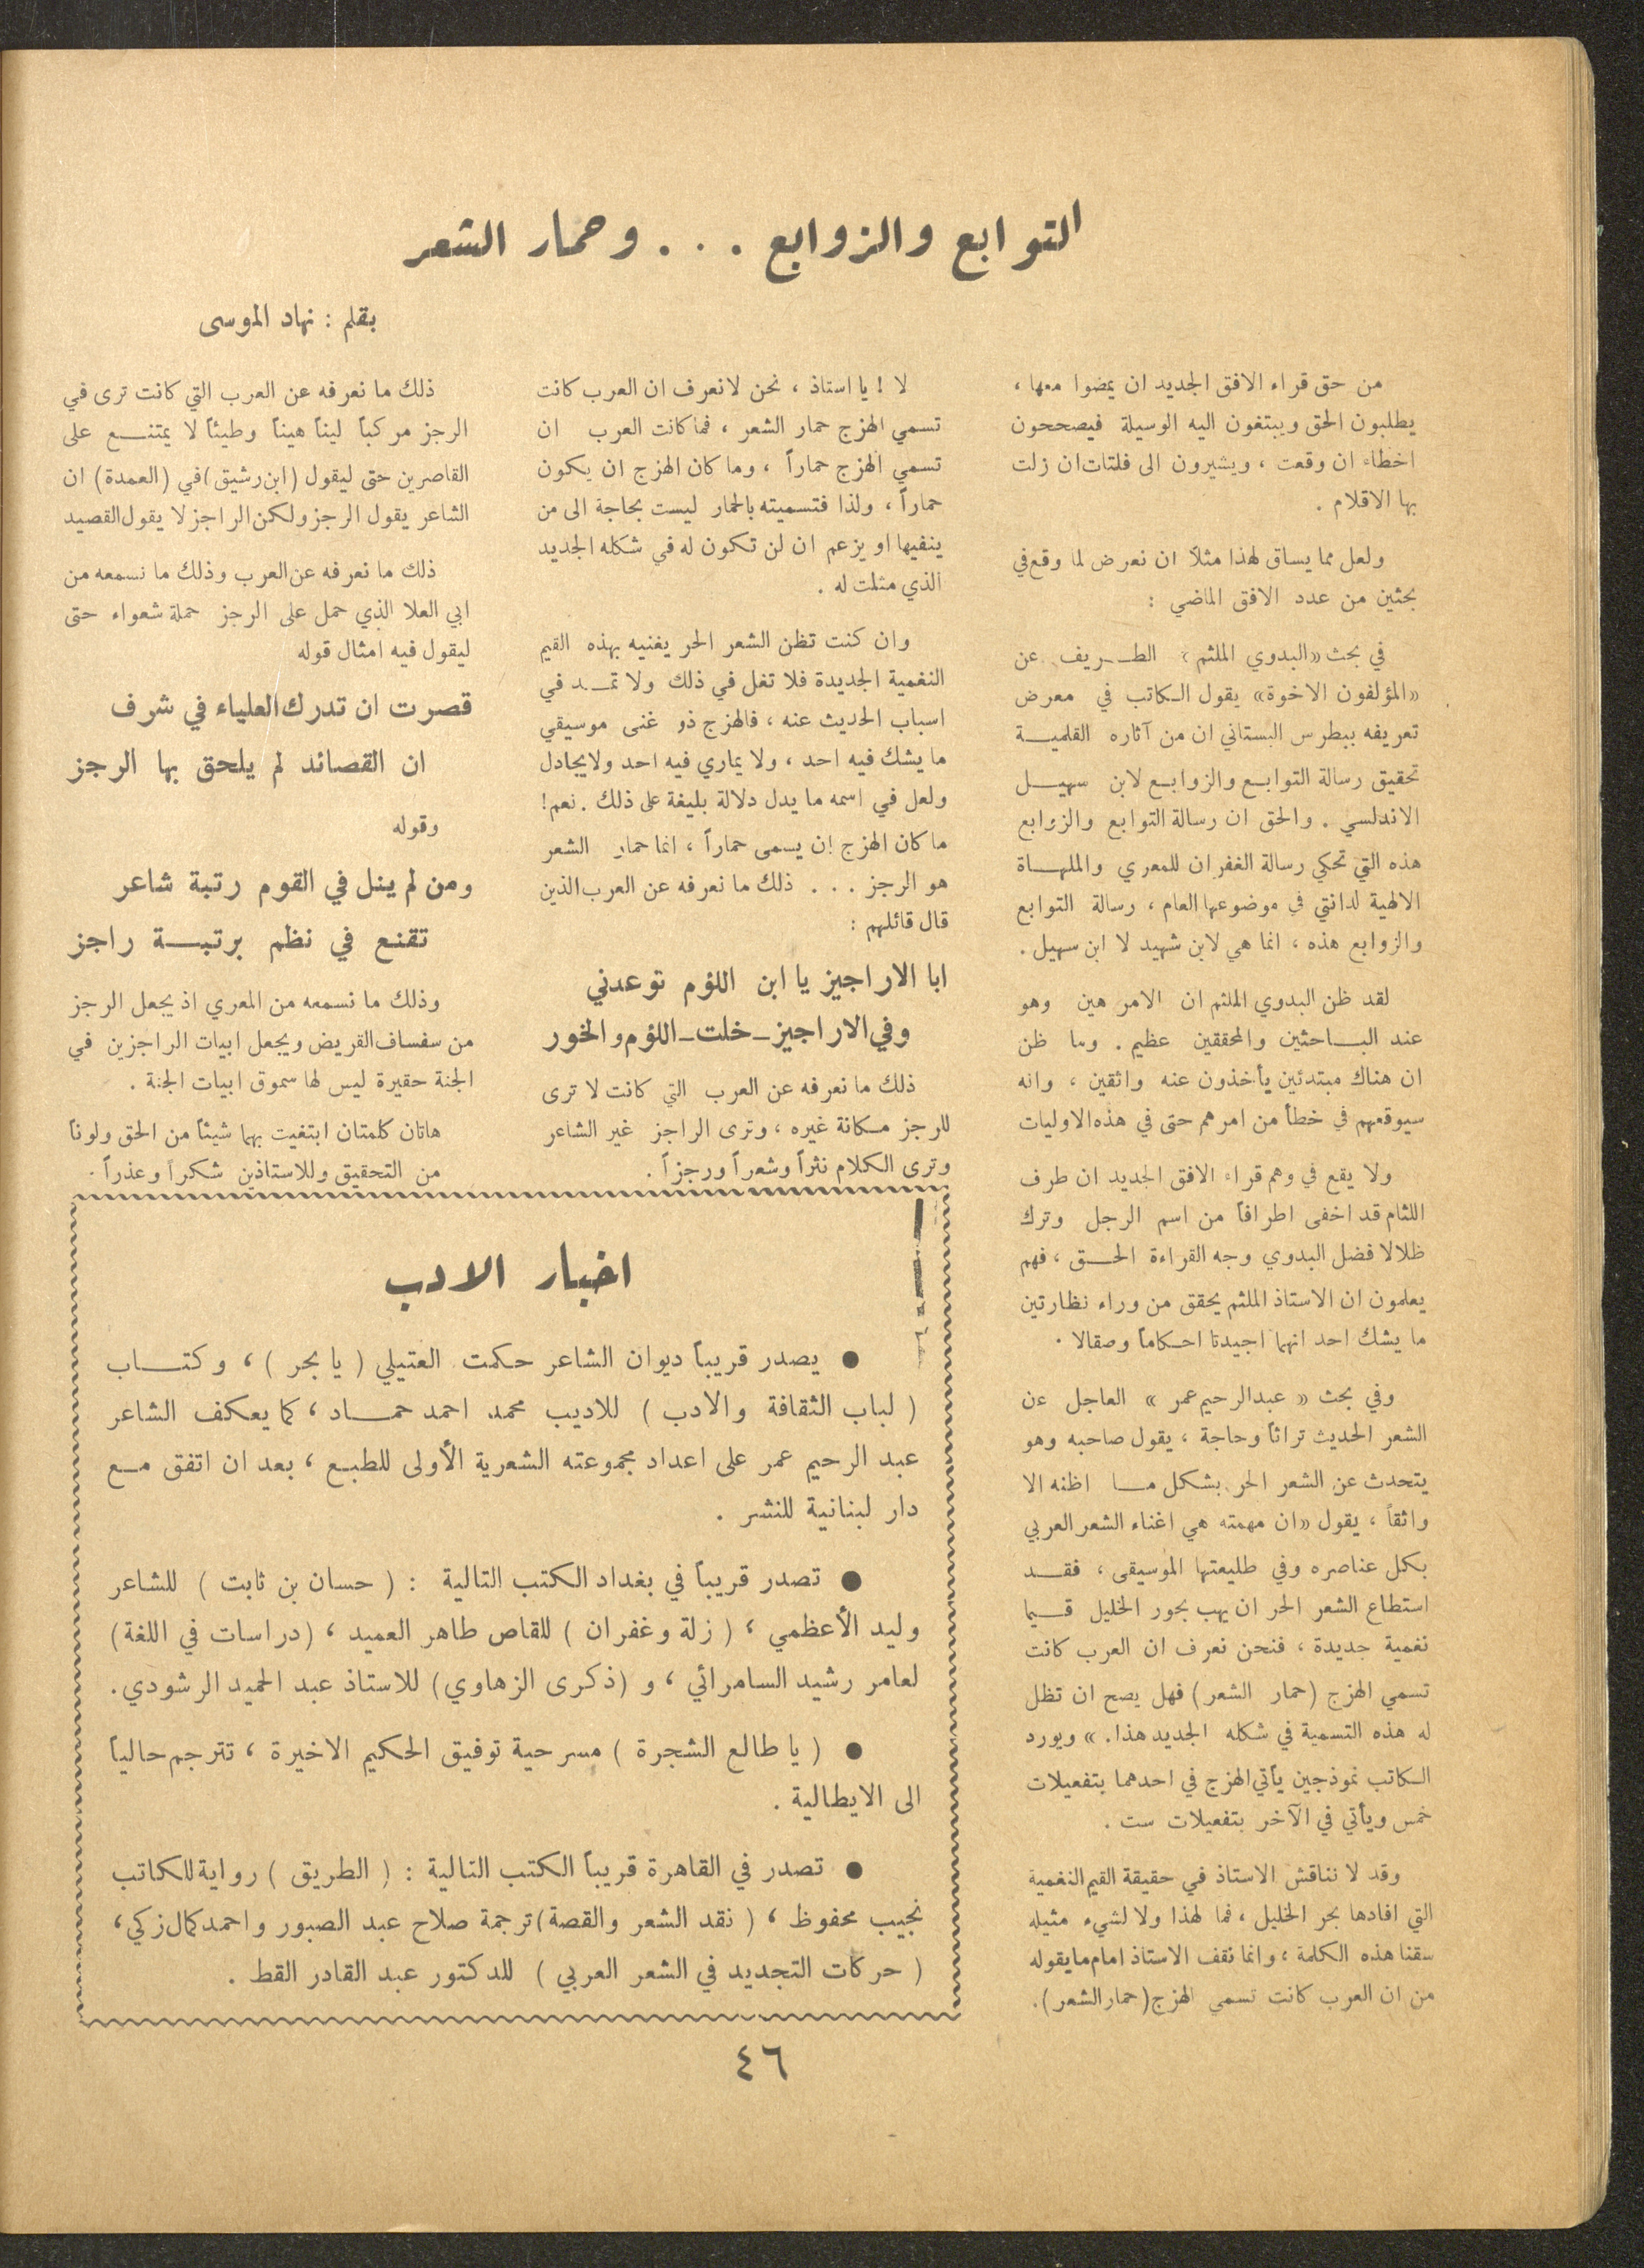 التوابع والزوابع . . . وحمار الشعر
بقلم : نهاد الموسى
من حق قراء الافق الجديد ان يمضوا معها ،
يطلبون الحق ويبتغون اليه الوسيلة فيصححون
اخطاء ان وقعت ، ويشيرون الى فلتات ان زلت
بها الاقلام .
ولعل مما يساق لهذا مثلا ان نعرض لما وقع في
بحثين من عدد الافق الماضي :
في بحث «البدوي الملثم» الطريف عن
«المؤلفون الاخوة» يقول الكاتب في معرض
تعريفه ببطرس البستاني ان من آثاره القلمية
تحقيق رسالة التوابع والزوابع لابن سهيل
الاندلسي . والحق ان رسالة التوابع والزوابع
هذه التي تحكي رسالة الغفران للمعري والملهاة
الالهية لدانتي في موضوعها العام ، رسالة التوابع
والزوابع هذه ، انما هي لابن شهيد لا ابن سهيل .
لقد ظن البدوي الملثم ان الامر هين وهو
عند الباحثين والمحققين عظيم . وما ظن
ان هناك مبتدئين يأخذون عنه واثقين ، وانه
سيوقعهم في خطأ من امرهم حتى في هذه الاوليات
ولا يقع في وهم قراء الافق الجديد ان طرف
اللثام قد اخفى اطرافاً من اسم الرجل وترك
ظلالا فضل البدوي وجه القراءة الحق ، فهم
يعلمون ان الاستاذ الملثم يحقق من وراء نظارتين
ما يشك احد انهما اجيدتا احكاماً وصقالا .
وفي بحث « عبدالرحيم عمر » العاجل عن
الشعر الحديث تراثاً وحاجة ، يقول صاحبه وهو
يتحدث عن الشعر الحر بشكل ما اظنه الا
واثقاً ، يقول «ان مهمته هي اغناء الشعر العربي
بكل عناصره وفي طليعتها الموسيقى ، فقد
استطاع الشعر الحر ان يهب بحور الخليل قيما
نغمية جديدة ، فنحن نعرف ان العرب كانت
تسمي الهزج (حمار الشعر) فهل يصح ان تظل
له هذه التسمية في شكله الجديد هذا . » ويورد
الكاتب نموذجين يأتي الهزج في احدهما بتفعيلات
خمس ويأتي في الآخر بتفعيلات ست .
وقد لا نناقش الاستاذ في حقيقة القيم النغمية
التي افادها بحر الخليل ، فما لهذا ولا لشيء مثيله
سقنا هذه الكلمة ، وانما نقف الاستاذ امام ما يقوله
من ان العرب كانت تسمي الهزج (حمار الشعر) .
لا ! يا استاذ ، نحن لا نعرف ان العرب كانت
تسمي الهزج حمار الشعر ، فما كانت العرب ان
تسمي الهزج حماراً ، وما كان الهزج ان يكون
حماراً ، ولذا فتسميته بالحمار ليست بحاجة الى من
ينفيها او يزعم ان لن تكون له في شكله الجديد
الذي مثلت له .
وان كنت تظن الشعر الحر يغنيه بهذه القيم
النغمية الجديدة فلا تغل في ذلك ولا تمد في
اسباب الحديث عنه ، فالهزج ذو غنى موسيقي
ما يشك فيه احد ، ولا يماري فيه احد ولا يجادل
ولعل في اسمه ما يدل دلالة بليغة على ذلك . نعم !
ما كان الهزج ان يسمى حماراً ، انما حمار الشعر
هو الرجز . . . ذلك ما نعرفه عن العرب الذين
قال قائلهم :
ابا الاراجيز يا ابن اللؤم توعدني
وفي الاراجيز - خلت - اللؤم والخور
ذلك ما نعرفه عن العرب التي كانت لا ترى
للرجز مكانة غيره ، وترى الراجز غير الشاعر
وترى الكلام نثراً وشعراً ورجزاً .
ذلك ما نعرفه عن العرب التي كانت ترى في
الرجز مركباً ليناً هيناً وطيئاً لا يمتنع على
القاصرين حتى ليقول (ابن رشيق) في (العمدة) ان
الشاعر يقول الرجز ولكن الراجز لا يقول القصيد
ذلك ما نعرفه عن العرب وذلك ما نسمعه من
ابي العلا الذي حمل على الرجز حملة شعواء حتى
ليقول فيه امثال قوله
قصرت ان تدرك العلياء في شرف
ان القصائد لم يلحق بها الرجز
وقوله
ومن لم ينل في القوم رتبة شاعر
تقنع في نظم برتبة راجز
وذلك ما نسمعه من المعري اذ يجعل الرجز
من سفساف القريض ويجعل ابيات الراجزين في
الجنة حقيرة ليس لها سموق ابيات الجنة .
هاتان كلمتان ابتغيت بهما شيئاً من الحق ولوناً
من التحقيق وللاستاذين شكراً وعذراً .
اخبار الادب
● يصدر قريباً ديوان الشاعر حكمت العتيلي ( يا بحر ) ، وكتاب
( لباب الثقافة والادب ) للاديب محمد احمد حماد ، كما يعكف الشاعر
عبد الرحيم عمر على اعداد مجموعته الشعرية الأولى للطبع ، بعد ان اتفق مع
دار لبنانية للنشر .
● تصدر قريباً في بغداد الكتب التالية : ( حسان بن ثابت ) للشاعر
وليد الأعظمي ، ( زلة وغفران ) للقاص طاهر العميد ، (دراسات في اللغة)
لعامر رشيد السامرائي ، و (ذكرى الزهاوي) للاستاذ عبد الحميد الرشودي .
● ( يا طالع الشجرة ) مسرحية توفيق الحكيم الاخيرة ، تترجم حالياً
الى الايطالية .
● تصدر في القاهرة قريباً الكتب التالية : ( الطريق ) رواية للكاتب
نجيب محفوظ ، ( نقد الشعر والقصة) ترجمة صلاح عبد الصبور واحمد كمال زكي ،
( حركات التجديد في الشعر العربي ) للدكتور عبد القادر القط .
٤٦